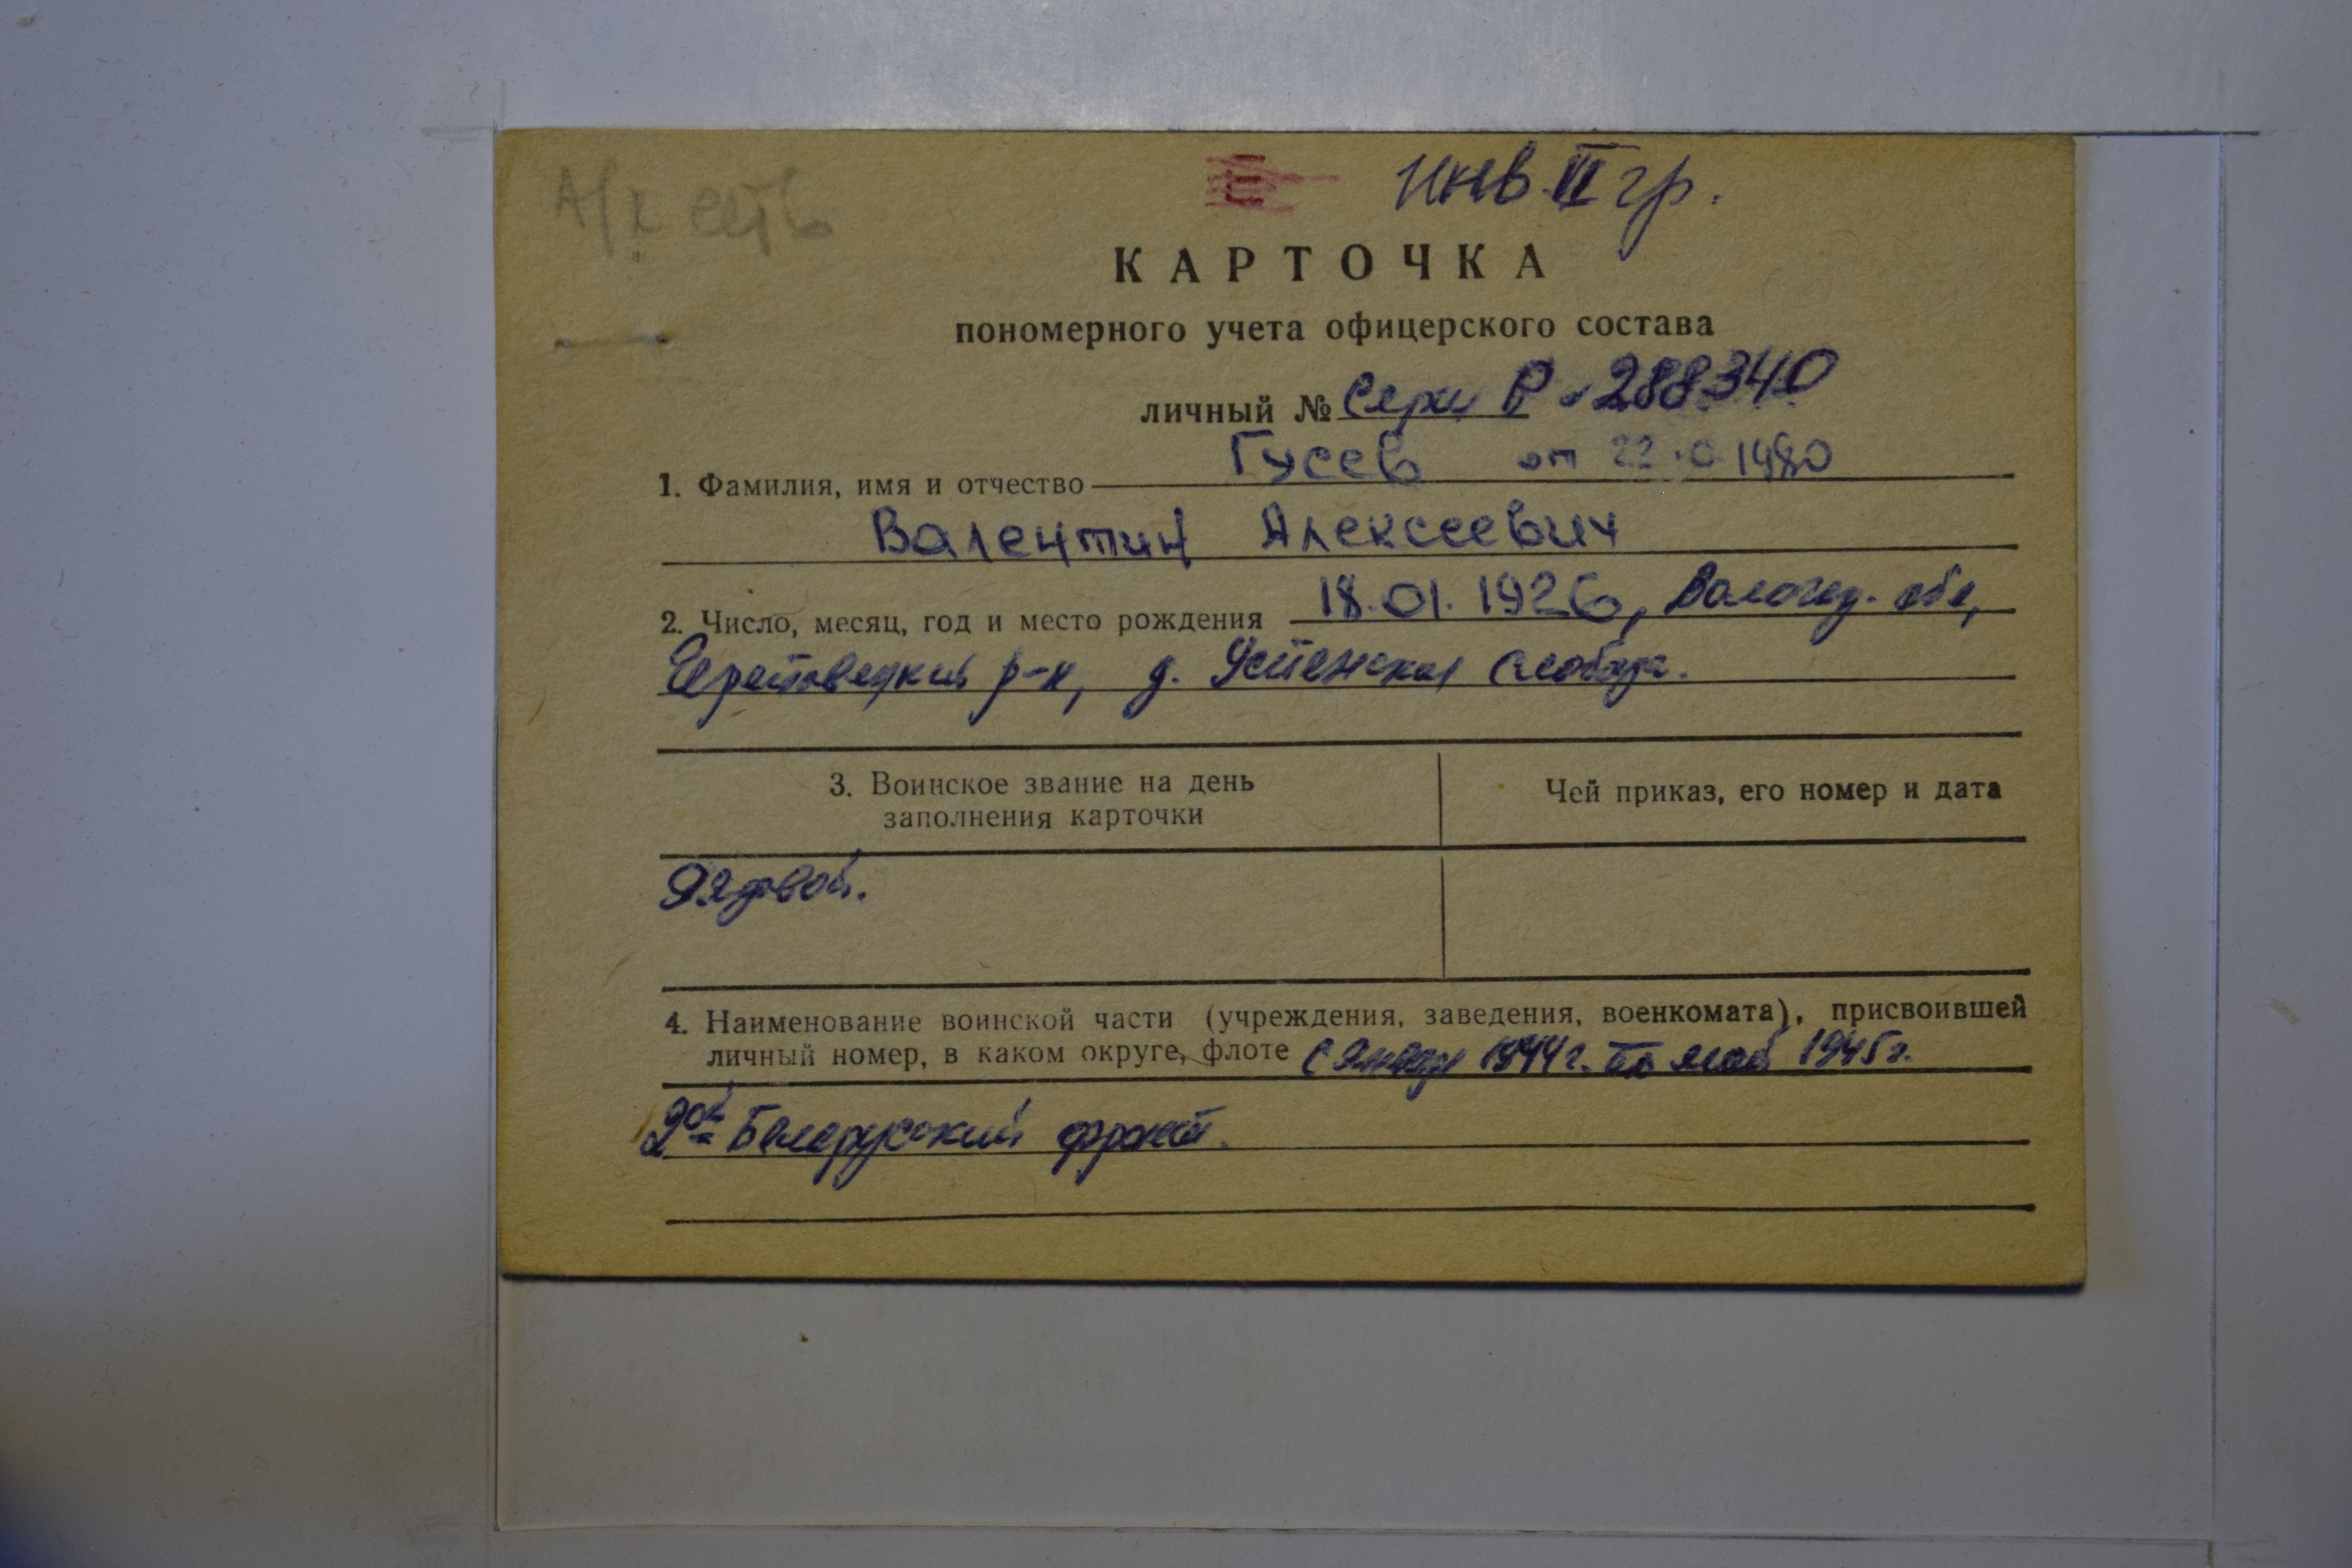 А/к есть
инв. II гр.
КАРТОЧКА
пономерного учета офицерского состава
личный № Серии Р № 288340
1. Фамилия, имя и отчество Гусев от 1980
Валентин Алексеевич
2. Число, месяц, год и место рождения 18.01.1926, Вологод. обл,
Череповецкий р-н, д. Успенская слобода.
3. Воинское звание на день
заполнения карточки
Чей приказ, его номер и дата
Рядовой.
4. Наименование воинской части (учреждения, заведения, военкомата), присвоившей
личный номер, в каком округе, флоте с января 1944 г. по май 1945 г.
2ой Белорусский фронт.